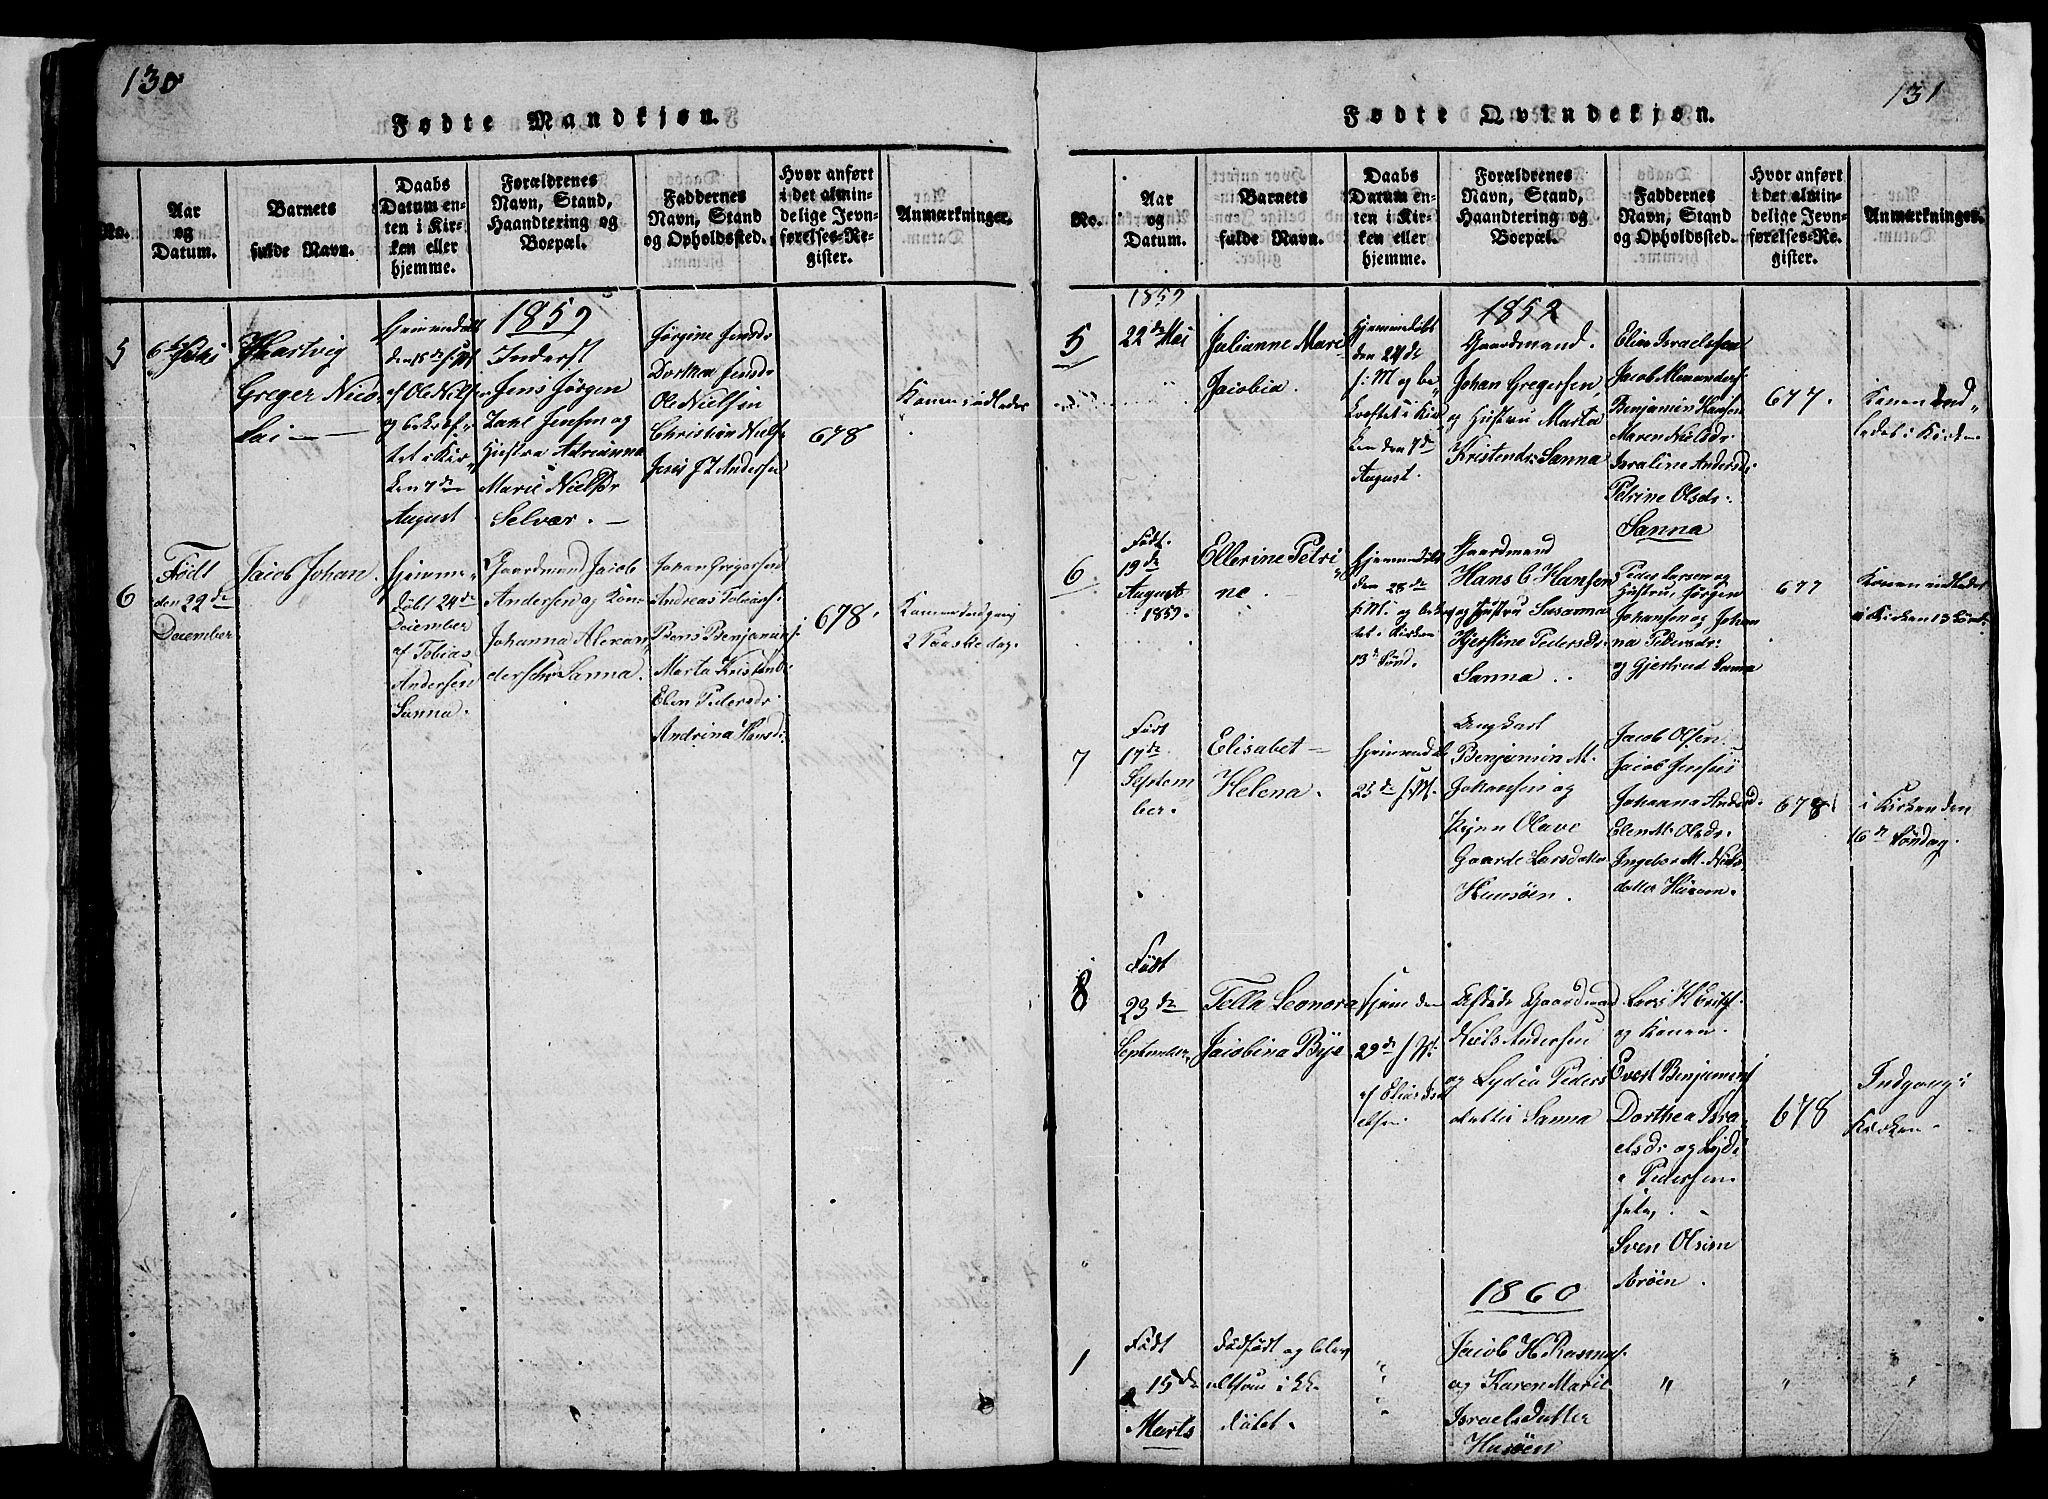 130
Fødte Mandkjøn.
No.
Aar
og
Datum.
Barnets
fulde Navn.
Daabs
Datum en-
ten i Kir-
ken eller
hjemme.
Forældrenes
Navn, Stand,
Haandtering og
Boepæl.
Faddernes
Navn, Stand
og Opholdssted.
Hvor anført
i det almin-
delige Jevn-
førelses-Re-
gister.
Anmærkninger.
5
Hartvig
Greger Nico
lai
Hjemmedøbt
den 15de s. M.
af Ole Nilsen
og bekræf-
tet i Kir-
ken 7de
August
1859
Inderst
Jens Jørgen
Zahl Jensen og
Hustru Adrianna
Marie Nielsdr
Selvær.
Jørgine Jensdr
Dorthea Jensdr
Ole Nielsen
Christian Niels
Jens J Z Andersen
678
Konen indledes
6
Født
den 22de
December
Jacob Johan
Hjemme-
døbt 24de
December
af Tobias
Andersen
Sanna.
Gaardmand Jacob
Andersen og Kone
Johanna Alexan
dersdr Sanna.
Johan Gregersen
Andreas Tobias
Benjamins
Marta Kristensdr
Elen Pedersdr
Andrina Hansdr
678.
Konen Indgang
2 Paaskedag.
131
Fødte Qvindekjøn.
No.
Aar
og
Datum.
Barnets
fulde Navn.
Daabs
Datum en-
ten i Kir-
ken eller
hjemme.
Forældrenes
Navn, Stand,
Haandtering og
Boepæl.
Faddernes
Navn, Stand
og Opholdssted.
Hvor anført
i det almin-
delige Jevn-
førelses-Re-
gister.
Anmærkninger.
5
1859
22de Mai
Julianne Mari
Jacobia.
Hjemmedøbt
den 24de
s: M og be
kræftet i Kir
ken den 7de
August.
1859
Gaardmand.
Johan Gregersen,
og Hustru Marta
Kristensdr Sanna
Elias Israelssen
Jacob Alexanders:
Benjamin Hansen
Maren Nielsdr.
Israline Andersdr
Petrine Olsdr:
Sanna
677.
Konen Ind=
ledet i Kirken
6
Født.
19de
August
1859.
Ellerine Petri
ne.
Hjemmedøbt
den 28de
s: M. og bekræf
tet i Kirken
13de Sønd.
Gaardmand
Hans C Hansen
og Hustru Susanna
Kjerstine Pedersdr
Sanna.
Peder Larsen og
Hustru, Jørgen
Johansen og Johan
na Pedersdr:
og Gjertrud Sanna
677
Konen indledet
i Kirken 13 Sønd.
7
Født
17de
Septem
ber.
Elisabet
Helena.
Hjemmedøbt
25de s: M.
Ungkarl
Benjamin M.
Johansen og
Pige Olave
Gaarde Larsdatter
Husøen.
Jacob Olsen
Jacob Jensen
Johanna Andersd.
Elen M. Olsdr.
Ingebor M. Niels
datter Husøen.
678
i Kirken den
16de Søndag.
8
Født
23de
September
Tella Leonora
Jacobina Bye
Hjemme den
29de s. M.
af Elias Isra
elsen
Afdøde Gaardmand
Niels Andersen
og Lydia Peders
datter Sanna
Lars H
og Konen
Evert Benjamins
Dorthea Isra
elsdr og Lydi
a Pedersen
Sven Olsen
678
Indgang i
Kirken.
1860
1
Født
15de
Marts
dødfødt og blev
altsaa ikke
døbt.
"
Jacob H Rasmus.
og Karen Marie
Israelsdatter
Husøen
"
"
"